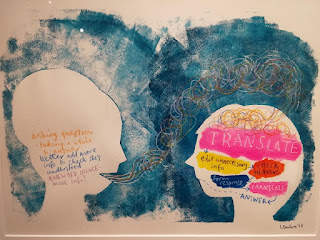 asking question
- taking a while
to answer
better add more
info to check they
understood
AWKWARD SILENCE
more info!
TRANSLATE
edit unnecessary
info
CHECK
MEANING
response
TRANSLATE
ANSWER